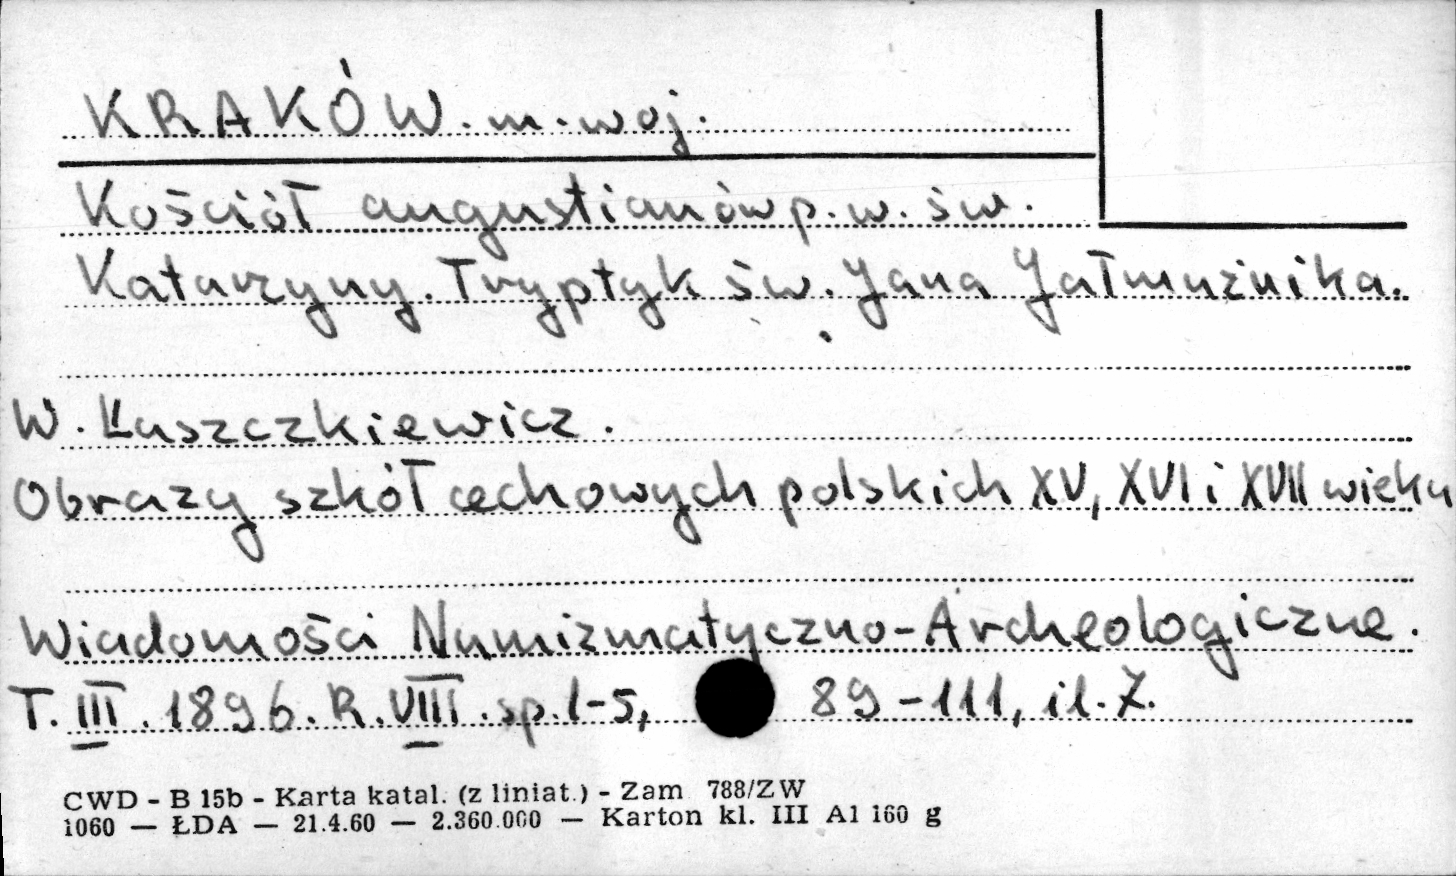 KRAKÓW. m. woj.
Kościół augustianów p. w. św.
Katarzyny. Tryptyk św. Jana Jałmużnika.
W. Łuszczkiewicz.
Obrazy szkół cechowych polskich XV, XVI i XVII wieku
Wiadomości Numizmatyczno-Archeologiczne.
T. III. 1896. R. VIII. sp. 1-5, 89-111, il. 7.
CWD - B 15b - Karta katal. (z liniat.) - Zam 788/ZW
1060 — ŁDA — 21.4.60 — 2.360.000 — Karton kl. III A1 160 g